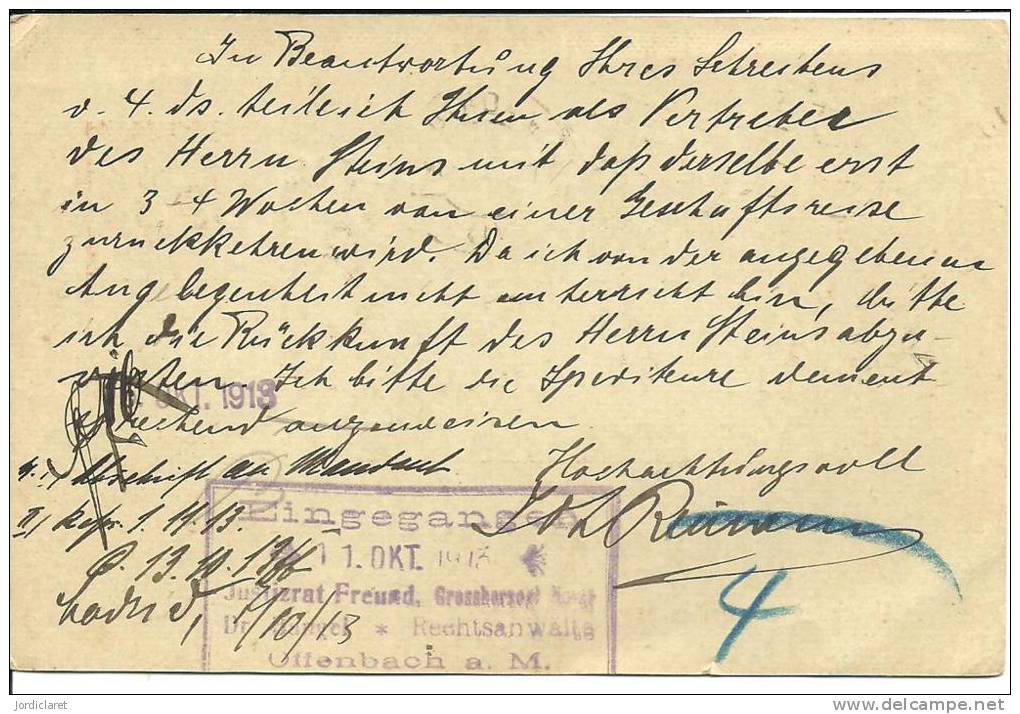 In Beantwortung Ihres Schreibens
v. 4. ds. teile ich Ihnen als Vertreter
des Herrn Steins mit, daß derselbe erst
in 3-4 Wochen von einer Geschäftsreise
zurückkehren wird. Da ich von der angegebenen
Angelegenheit nicht unterricht bin, bitte
ich die Rückkunft des Herrn Steins abzu-
warten. Ich bitte die Spediteure dement
sprechend anzuweisen.
OKT. 1913
Hochachtungsvoll
Abschrift an Mandant
II) 1. 11. 13
13. 10. 13
Eingegangen
11. OKT. 1913
Justizrat Freund, Grossherzogl
Dr. Rechtsanwälte
Offenbach a. M.
4
jordiclaret
www.delcampe.net